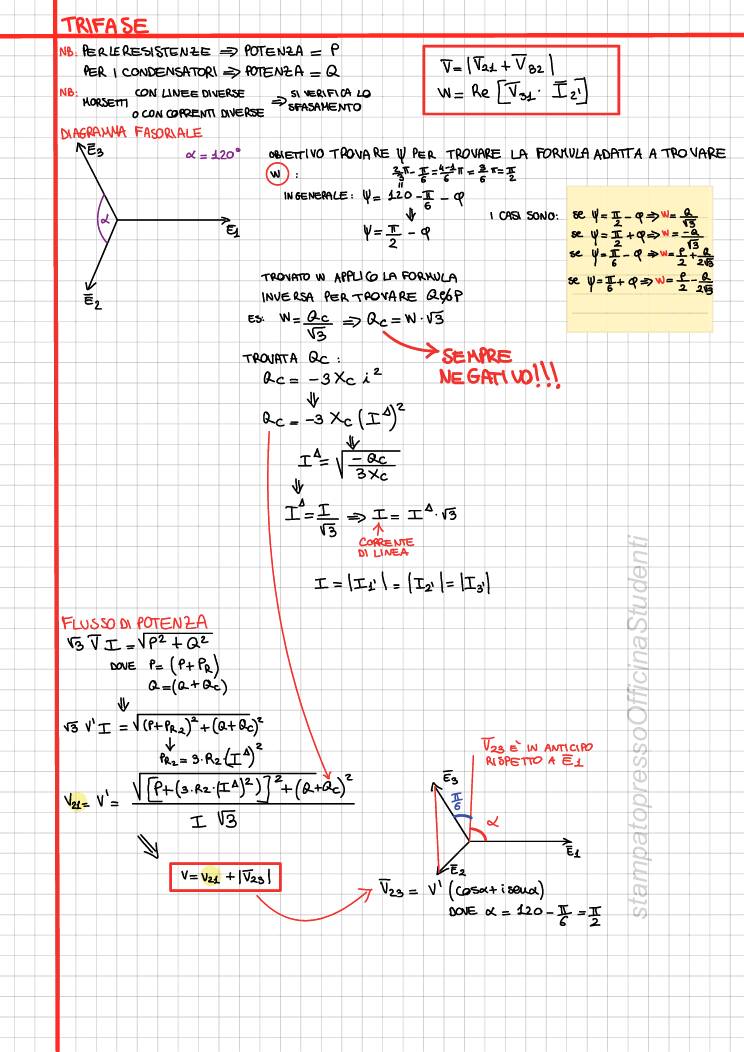 TRIFASE
NB: PER LE RESISTENZE ⇒ POTENZA = P
PER I CONDENSATORI ⇒ POTENZA = Q
NB: MORSETTI CON LINEE DIVERSE O CON CORRENTI DIVERSE ⇒ SI VERIFICA LO SFASAMENTO
V̅ = |V̅21 + V̅32|
W = Re [V̅31 · I̅2']
DIAGRAMMA FASORIALE
E̅3
α = 120°
α
E̅1
E̅2
OBIETTIVO TROVARE ψ PER TROVARE LA FORMULA ADATTA A TROVARE
W :
2/3 π - π/6 = 4-1/6 π = 3/6 π = π/2
IN GENERALE: ψ = 120 - π/6 - φ
⇓
ψ = π/2 - φ
I CASI SONO:
se ψ = π/2 - φ ⇒ W = Q/√3
se ψ = π/2 + φ ⇒ W = -Q/√3
se ψ = π/6 - φ ⇒ W = P/2 + Q/2√3
se ψ = π/6 + φ ⇒ W = P/2 - Q/2√3
TROVATO W APPLICO LA FORMULA
INVERSA PER TROVARE Q e/o P
ES: W = Qc/√3 ⇒ Qc = W · √3
SEMPRE
NEGATIVO!!!
TROVATA Qc :
Qc = -3 Xc i²
⇓
Qc = -3 Xc (I^Δ)²
⇓
I^Δ = √(-Qc/3Xc)
⇓
I^Δ = I/√3 ⇒ I = I^Δ · √3
↑
CORRENTE
DI LINEA
I = |I1'| = |I2'| = |I3'|
FLUSSO DI POTENZA
√3 V̅ I = √(P² + Q²)
DOVE P = (P + PR)
Q = (Q + Qc)
⇓
√3 V' I = √((P + PR2)² + (Q + Qc)²)
↓
PR2 = 3 · R2 · (I^Δ)²
V21 = V' = √([P + (3 · R2 · (I^Δ)²)]² + (Q + Qc)²) / I √3
⇓
V = V21 + |V̅23|
V̅23 È IN ANTICIPO
RISPETTO A E̅1
E̅3
π/6
α
E̅1
E̅2
V̅23 = V' (cosα + i senα)
DOVE α = 120 - π/6 = π/2
stampatopressoOfficinaStudenti